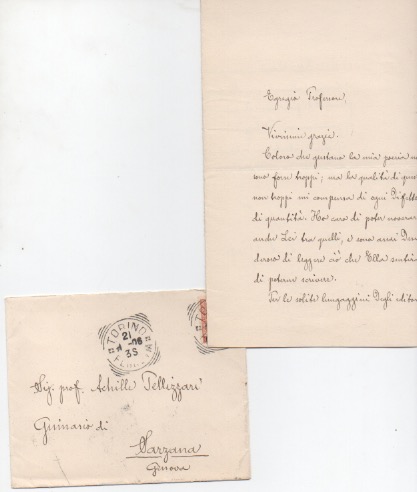 Egregio Professore,
Vivissime grazie.
Coloro che gustano la mia poesia
sono forse troppi; ma la qualità di que
non troppi mi compensa di ogni difetto
di quantità. Ho caro di poter
anche Lei tra quelli, e sono anzi
di leggere ciò che Ella
di poterne scrivere.
Per le solite lungaggini degli
TORINO
21
Sig. prof. Achille Pellizzari
Ginnasio di
Sarzana
Genova